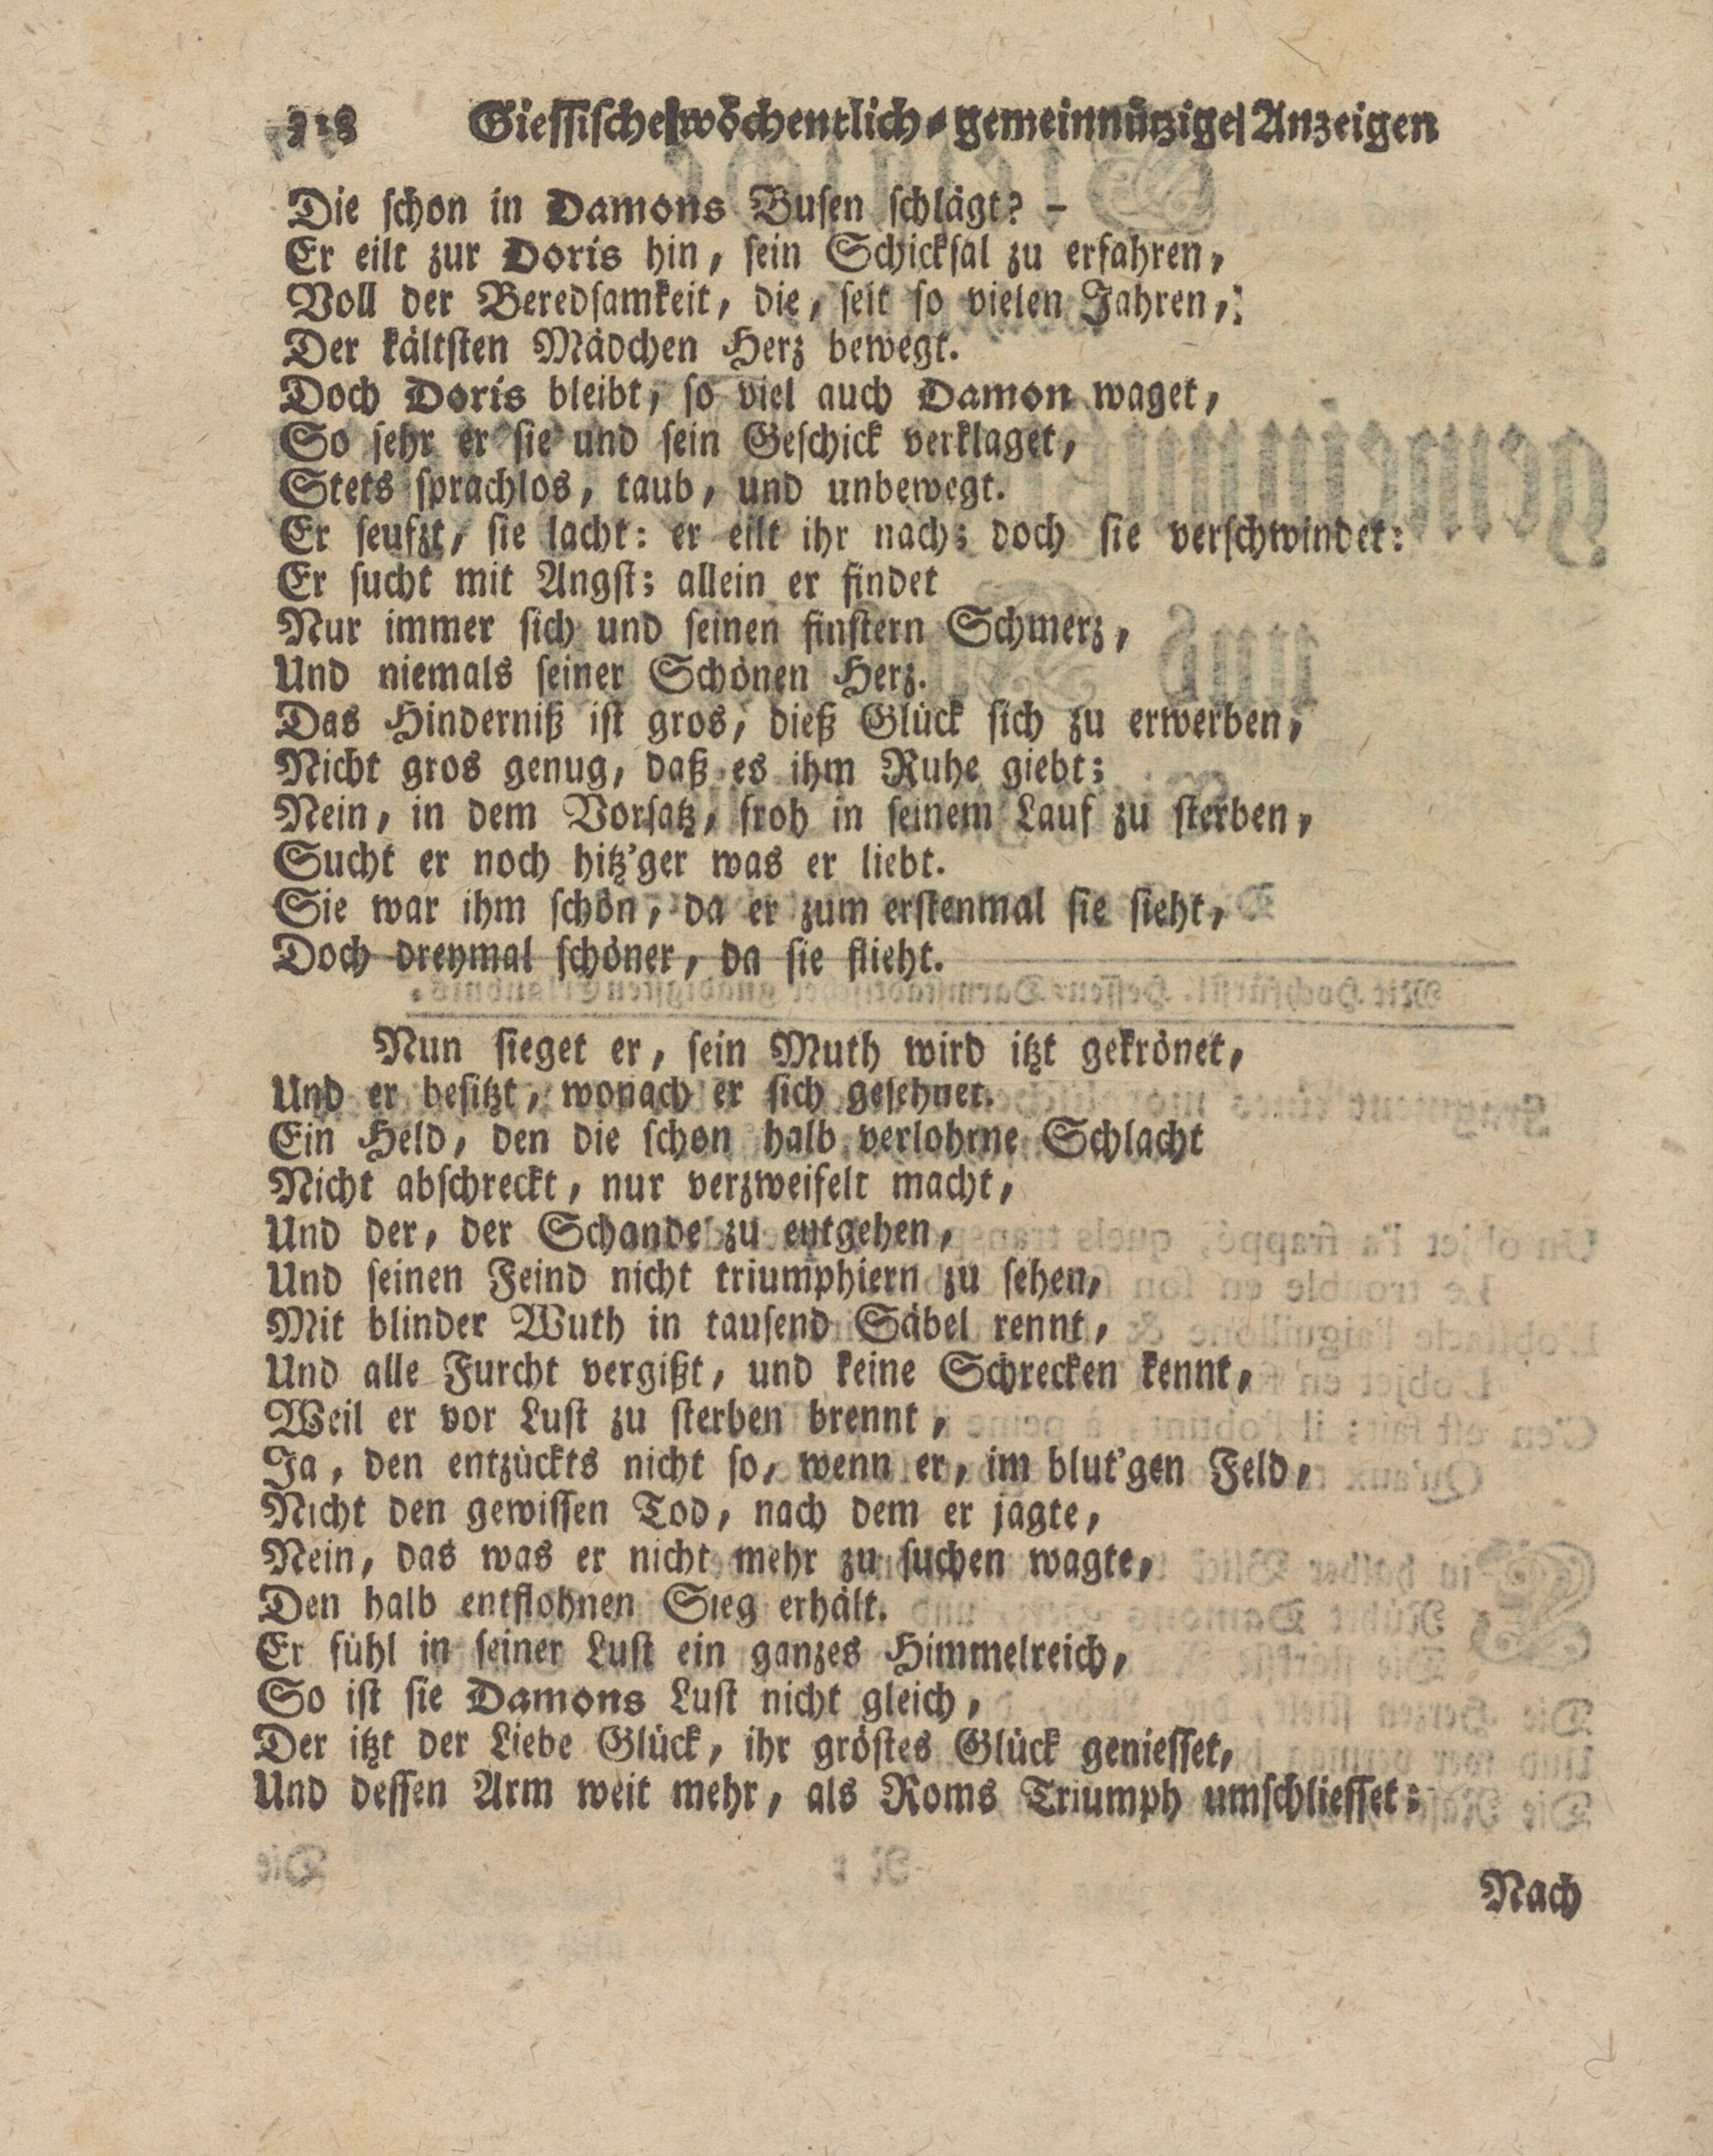 Giessische wöchentlich-gemeinnützige Anzeigen
Die schon in Damons Busen schlägt? -
Er eilt zur Doris hin, sein Schicksal zu erfahren,
Voll der Beredsamkeit, die, seit so vielen Jahren,
Der kältsten Mädchen Herz bewegt.
Doch Doris bleibt, so viel auch Damon waget,
So sehr er sie und sein Geschick verklaget,
Stets sprachlos, taub, und unbewegt.
Er seufzt, sie lacht: er eilt ihr nach; doch sie verschwindet:
Er sucht mit Angst; allein er findet
Nur immer sich und seinen finstern Schmerz,
Und niemals seiner Schönen Herz.
Das Hinderniß ist gros, dieß Glück sich zu erwerben,
Nicht gros genug, daß es ihm Ruhe giebt;
Nein, in dem Vorsatz, froh in seinem Lauf zu sterben,
Sucht er noch hitz'ger was er liebt.
Sie war ihm schön, da er zum erstenmal sie sieht,
Doch dreymal schöner, da sie flieht.
Nun sieget er, sein Muth wird itzt gekrönet,
Und er besitzt, wonach er sich gesehnet.
Ein Held, den die schon halb verlohrne Schlacht
Nicht abschreckt, nur verzweifelt macht,
Und der, der Schande zu entgehen,
Und seinen Feind nicht triumphiern zu sehen,
Mit blinder Wuth in tausend Säbel rennt,
Und alle Furcht vergißt, und keine Schrecken kennt,
Weil er vor Lust zu sterben brennt,
Ja, den entzückts nicht so, wenn er, im blut'gen Feld,
Nicht den gewissen Tod, nach dem er jagte,
Nein, das was er nicht mehr zu suchen wagte,
Den halb entflohnen Sieg erhält.
Er fühl in seiner Lust ein ganzes Himmelreich,
So ist sie Damons Lust nicht gleich,
Der itzt der Liebe Glück, ihr gröstes Glück geniesset,
Und dessen Arm weit mehr, als Roms Triumph umschliesset;
Nach